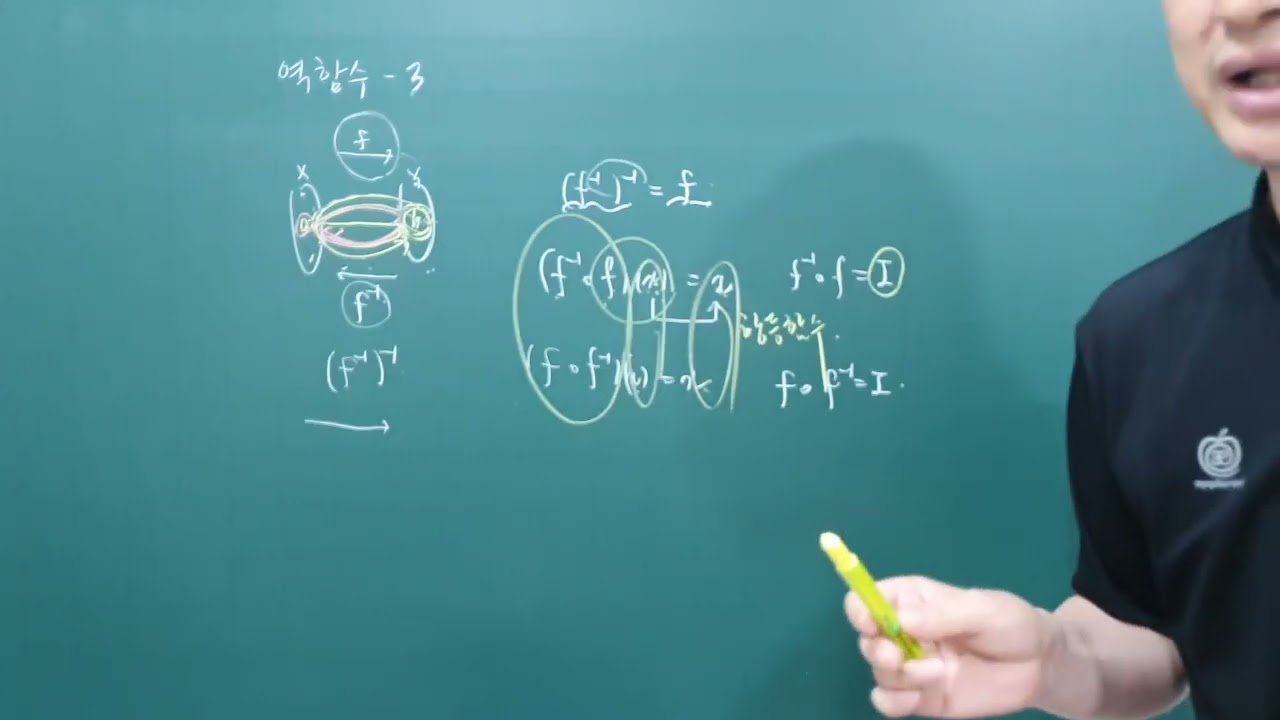 역함수 - 3
f
X Y
a b
f⁻¹
(f⁻¹)⁻¹
(f⁻¹)⁻¹ = f
(f⁻¹∘f)(x) = x f⁻¹∘f = I
항등함수
(f∘f⁻¹)(x) = x f∘f⁻¹ = I